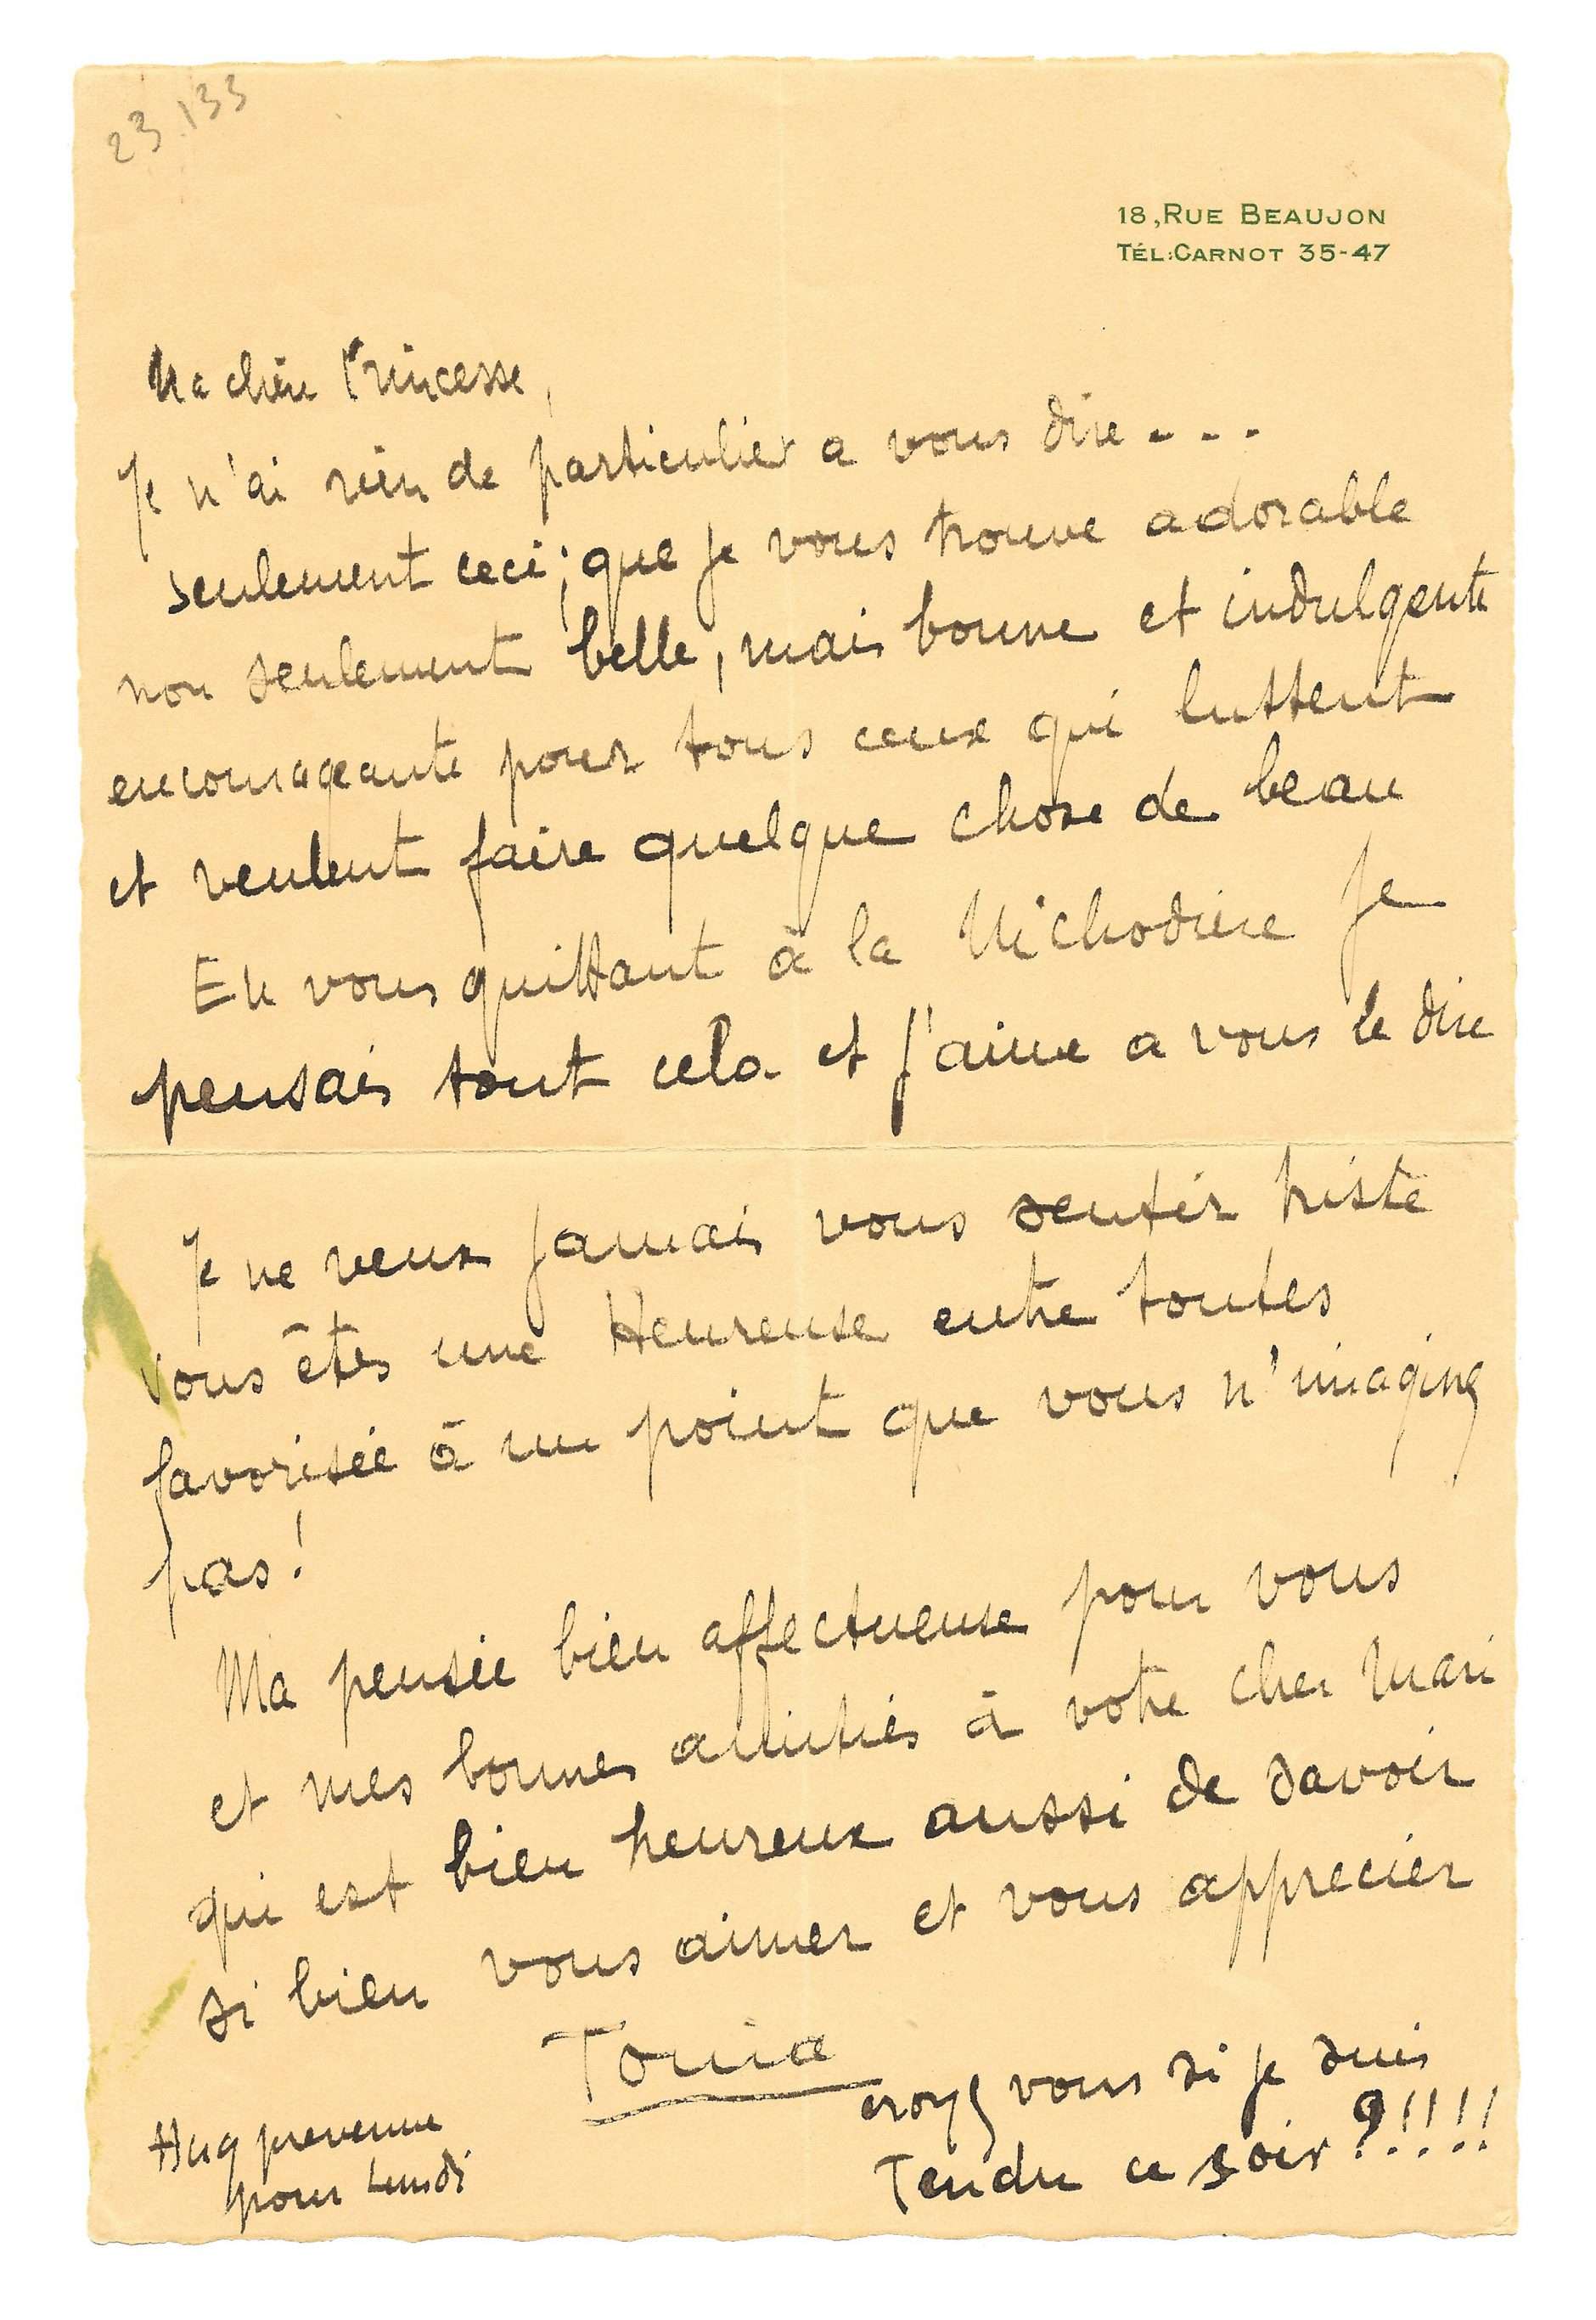 23.133
18, RUE BEAUJON
TÉL:CARNOT 35-47
Ma chère Princesse,
Je n'ai rien de particulier a vous dire - - -
seulement ceci; que je vous trouve adorable
non seulement belle, mais bonne et indulgente
encourageante pour tous ceux qui luttent
et veulent faire quelque chose de beau
En vous quittant à la Michodière Je
pensais tout cela et j'aime a vous le dire
Je ne veux jamais vous sentir triste
vous êtes une Heureuse entre toutes
favorisée à un point que vous n'imaginez
pas!
Ma pensée bien affectueuse pour vous
et mes bonnes amitiés à votre cher Mari
qui est bien heureux aussi de savoir
si bien vous aimer et vous apprecier
Tonia
croyez vous si je suis
Tendre ce soir ?!!!!
prevenue
pour Lundi